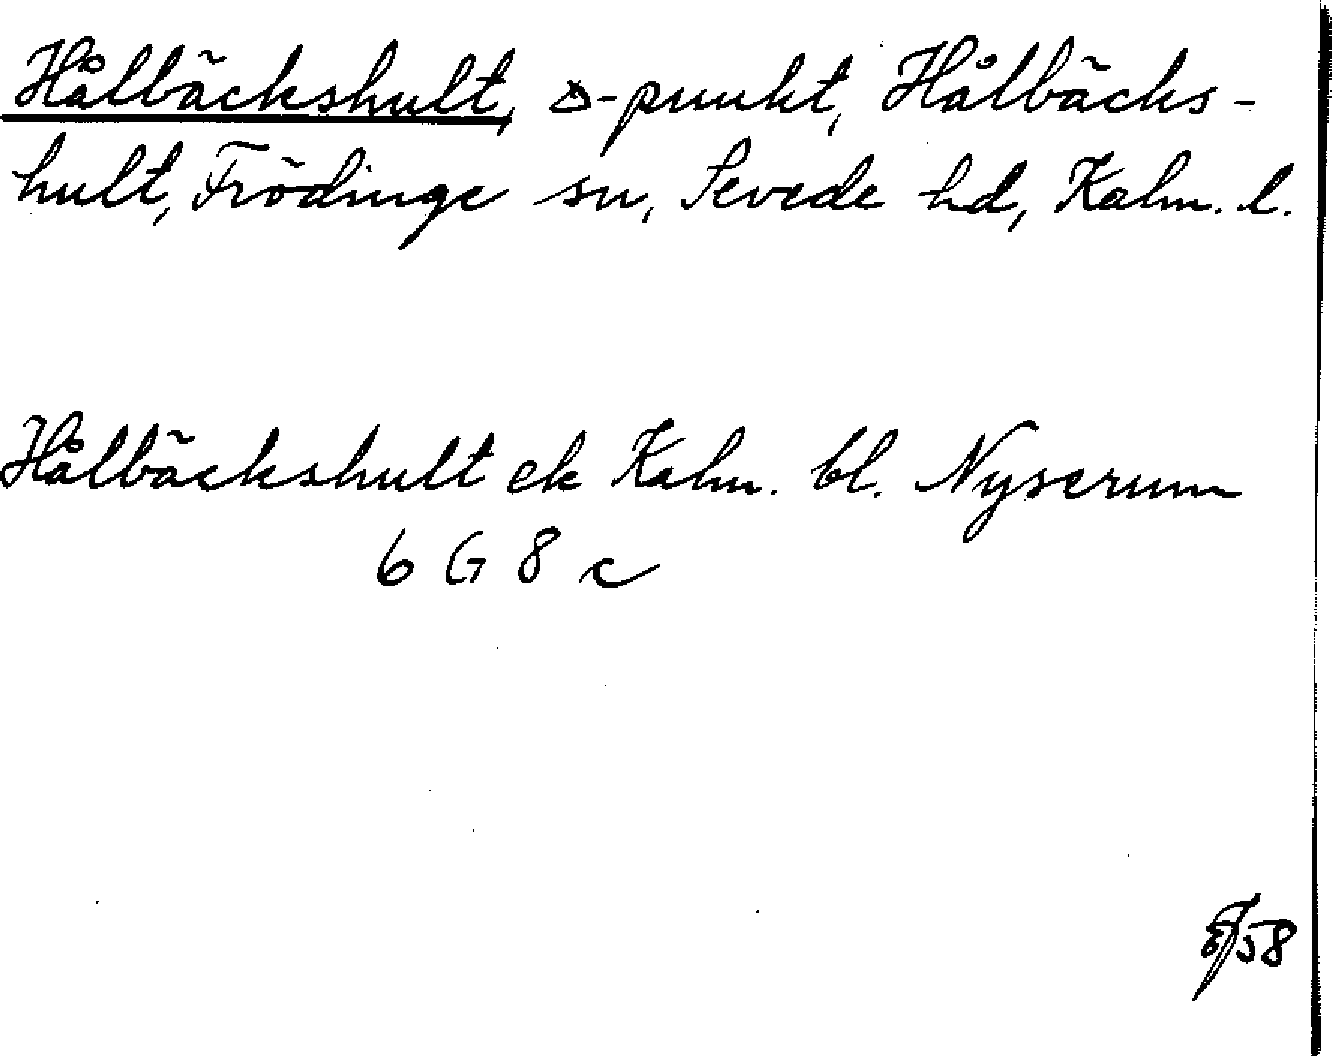 Hålbäckshult, △-punkt, Hålbäcks-
hult, Frödinge sn, Sevede hd, Kalm. l.
Hålbäckshult ek Kalm. bl. Nyserum
6 G 8 c
58